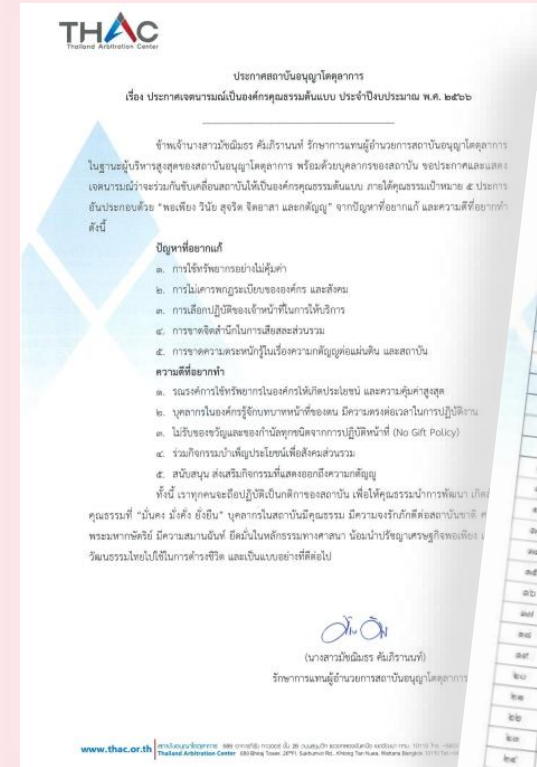 THAC
Thailand Arbitration Center
ประกาศสถาบันอนุญาโตตุลาการ
เรื่อง ประกาศเจตนารมณ์เป็นองค์กรคุณธรรมต้นแบบ ประจำปีงบประมาณ พ.ศ. ๒๕๖๖
ข้าพเจ้านางสาวมัชฌิมธร คัมภิรานนท์ รักษาการแทนผู้อำนวยการสถาบันอนุญาโตตุลาการ
ในฐานะผู้บริหารสูงสุดของสถาบันอนุญาโตตุลาการ พร้อมด้วยบุคลากรของสถาบัน ขอประกาศและแสดง
เจตนารมณ์ว่าจะร่วมกันขับเคลื่อนสถาบันให้เป็นองค์กรคุณธรรมต้นแบบ ภายใต้คุณธรรมเป้าหมาย ๕ ประการ
อันประกอบด้วย “พอเพียง วินัย สุจริต จิตอาสา และกตัญญู” จากปัญหาที่อยากแก้ และความดีที่อยากทำ
ดังนี้
ปัญหาที่อยากแก้
๑. การใช้ทรัพยากรอย่างไม่คุ้มค่า
๒. การไม่เคารพกฎระเบียบขององค์กร และสังคม
๓. การเลือกปฏิบัติของเจ้าหน้าที่ในการให้บริการ
๔. การขาดจิตสำนึกในการเสียสละส่วนรวม
๕. การขาดความตระหนักรู้ในเรื่องความกตัญญูต่อแผ่นดิน และสถาบัน
ความดีที่อยากทำ
๑. รณรงค์การใช้ทรัพยากรในองค์กรให้เกิดประโยชน์ และความคุ้มค่าสูงสุด
๒. บุคลากรในองค์กรรู้จักบทบาทหน้าที่ของตน มีความตรงต่อเวลาในการปฏิบัติงาน
๓. ไม่รับของขวัญและของกำนัลทุกชนิดจากการปฏิบัติหน้าที่ (No Gift Policy)
๔. ร่วมกิจกรรมบำเพ็ญประโยชน์เพื่อสังคมส่วนรวม
๕. สนับสนุน ส่งเสริมกิจกรรมที่แสดงออกถึงความกตัญญู
ทั้งนี้ เราทุกคนจะถือปฏิบัติเป็นกติกาของสถาบัน เพื่อให้คุณธรรมนำการพัฒนา เกิด
คุณธรรมที่ “มั่นคง มั่งคั่ง ยั่งยืน” บุคลากรในสถาบันมีคุณธรรม มีความจงรักภักดีต่อสถาบันชาติ
พระมหากษัตริย์ มีความสมานฉันท์ ยึดมั่นในหลักธรรมทางศาสนา น้อมนำปรัชญาเศรษฐกิจพอเพียง
วัฒนธรรมไทยไปใช้ในการดำรงชีวิต และเป็นแบบอย่างที่ดีต่อไป
(นางสาวมัชฌิมธร คัมภิรานนท์)
รักษาการแทนผู้อำนวยการสถาบันอนุญาโตตุลาการ
www.thac.or.th
Thailand Arbitration Center